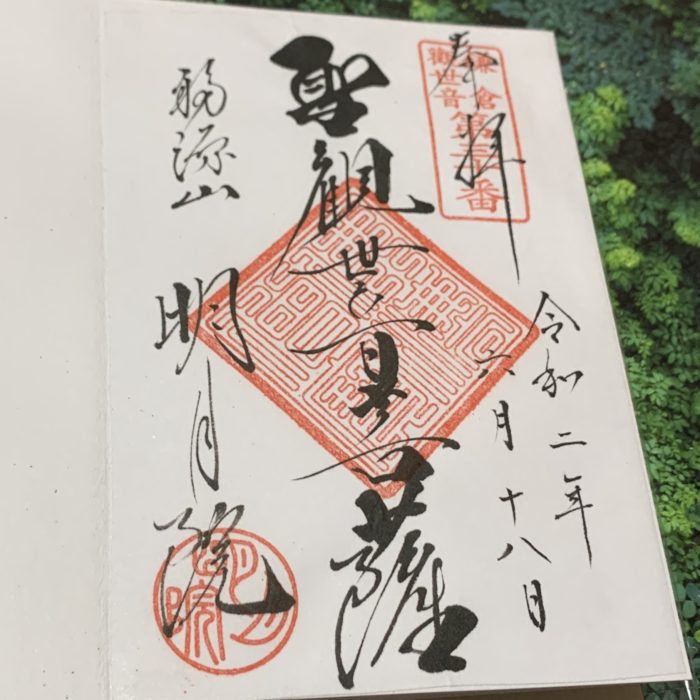 奉拝
鎌倉
觀世音
第三十番
令和二年
六月十八日
聖観世音菩薩
福源山
明月院
明月院